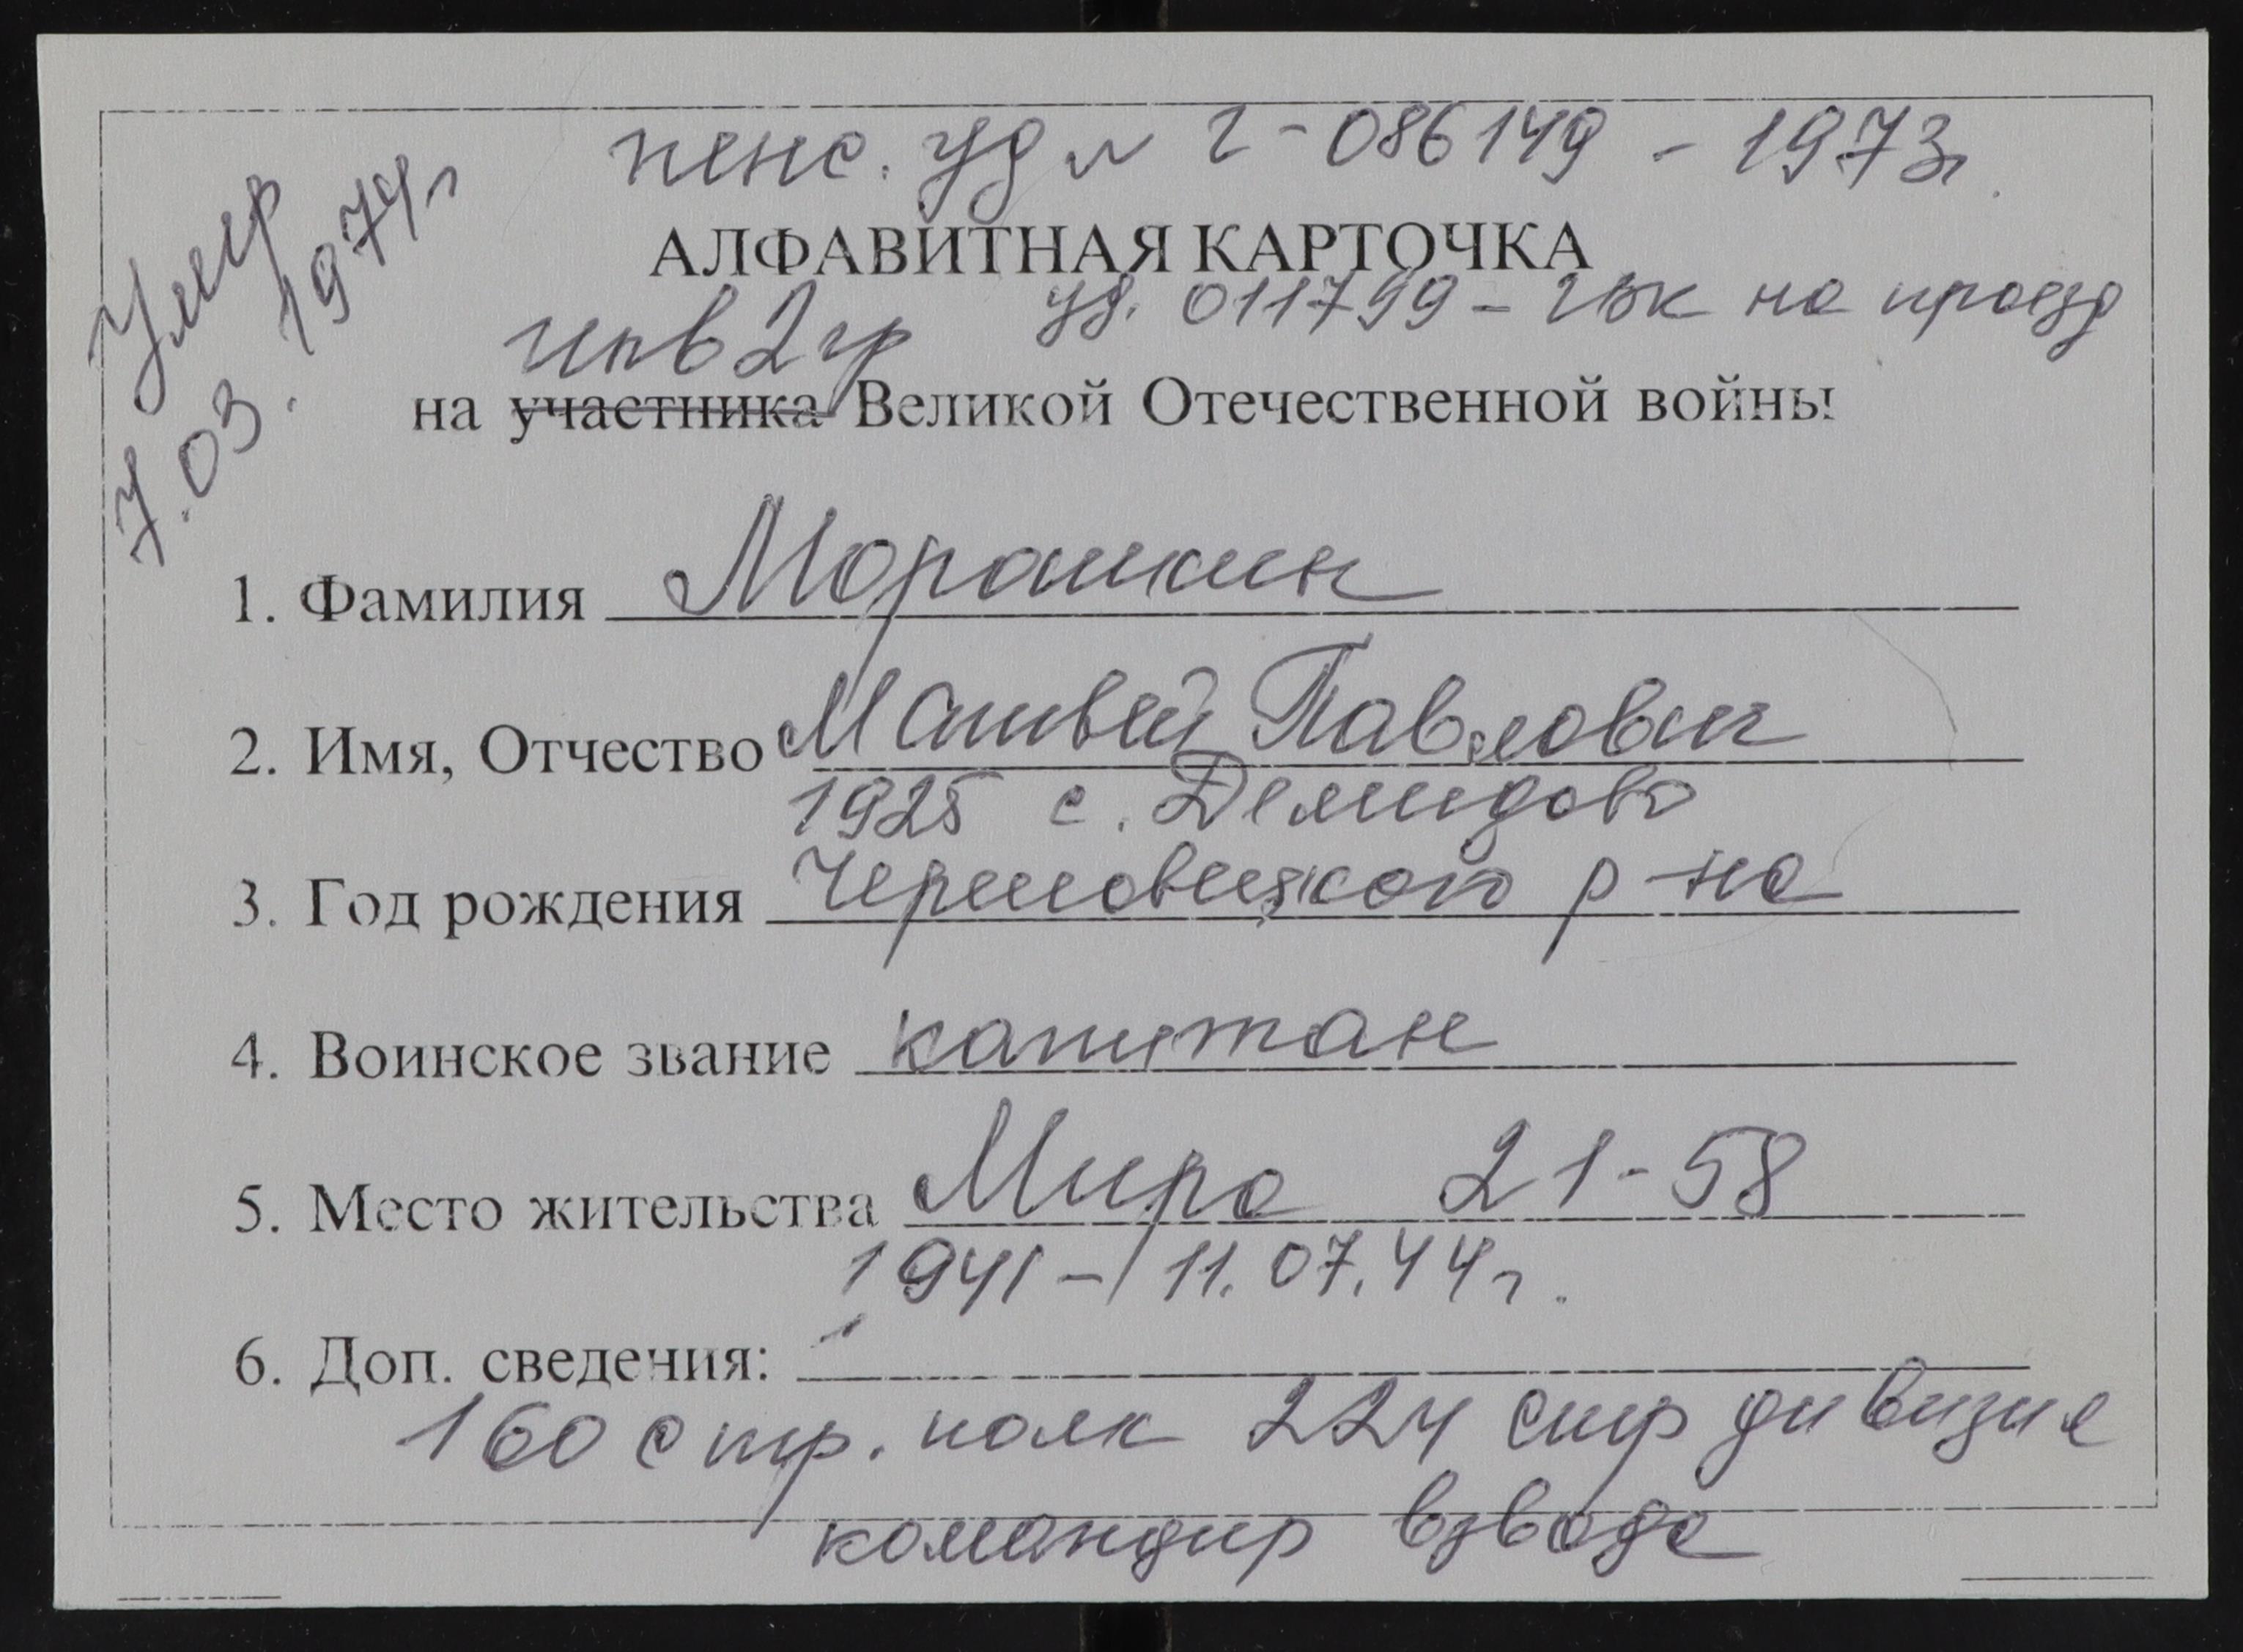 пенс. уд № 2-086149 - 1973г.
Умер
7.03.1974г
АЛФАВИТНАЯ КАРТОЧКА
уд. 011799 - ГВК на проезд
инв 2 гр
на участника Великой Отечественной войны
1. Фамилия Морашкин
2. Имя, Отчество Матвей Павлович
1925 с. Демидово
3. Год рождения Черновецкого р-на
4. Воинское звание капитан
5. Место жительства Мира 21-58
1941 - 11.07.44г.
6. Доп. сведения:
160 стр. полк 224 стр дивизия
командир взвода